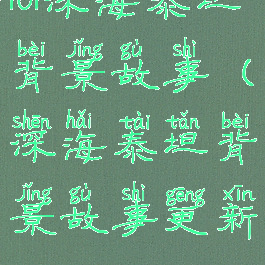 for深海泰坦
bèi jǐng gù shì
背景故事（
shēn hǎi tài tǎn bèi
深海泰坦背
jǐng gù shì gēng xīn
景故事更新